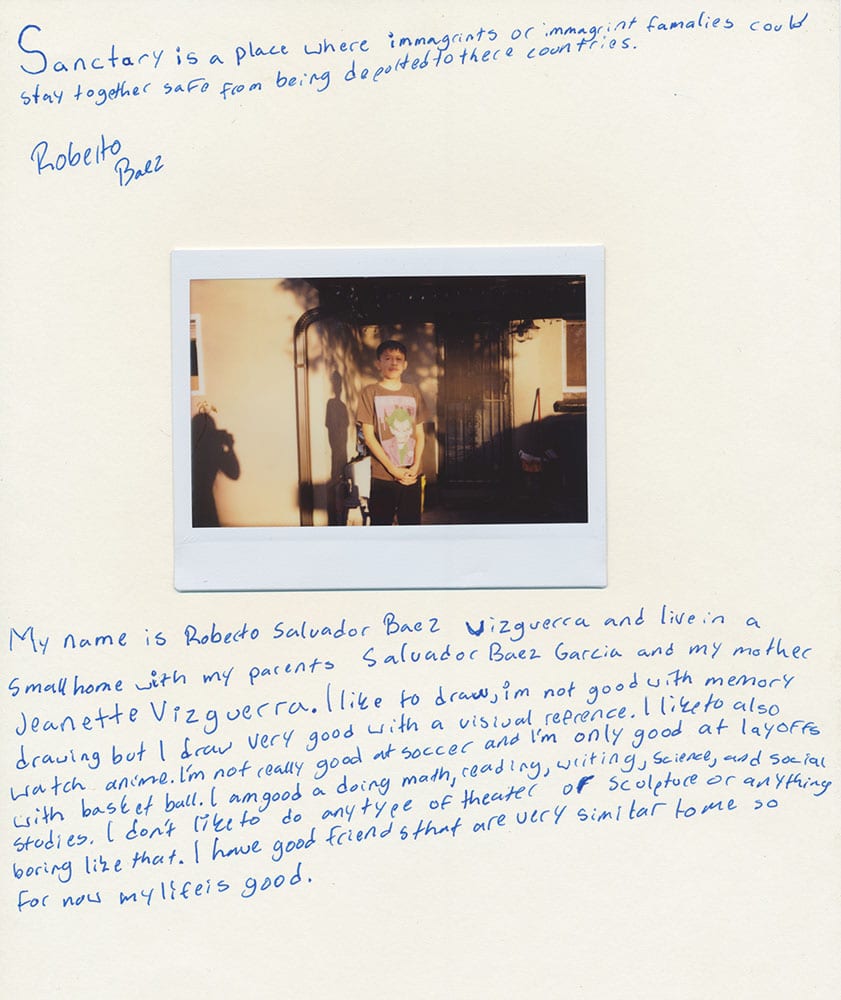 Sanctary is a place where immagrints or immagrint famalies could
stay together safe from being deported to there countries.
Roberto
Baez
My name is Roberto Salvador Baez Vizguerra and live in a
small home with my parents Salvador Baez Garcia and my mother
Jeanette Vizguerra. I like to draw, i'm not good with memory
drawing but I draw very good with a visiual refrence. I like to also
watch anime. I'm not really good at soccer and I'm only good at layoffs
with basket ball. I am good a doing math, reading, writing, science, and social
studies. I don't like to do any type of theater or sculpture or anything
boring like that. I have good friends that are very similar to me so
for now my life is good.